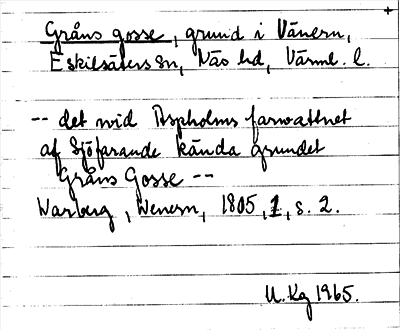 Gråns gosse, grund i Vänern,
Eskilsäters sn, Näs hd, Värml. l.
-- det wid Aspholms farwattnet
af Sjöfarande kända grundet
Gråns Gosse --
Warberg, Wenern, 1805, 1, s. 2.
U. Kg 1965.